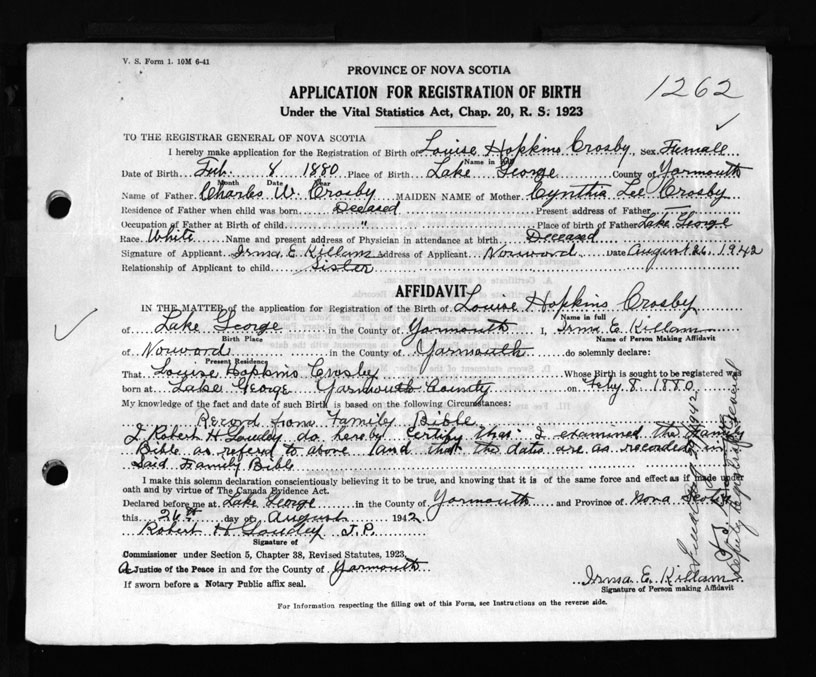 V. S. Form 1. 10M 6-41
PROVINCE OF NOVA SCOTIA
APPLICATION FOR REGISTRATION OF BIRTH
1262
Under the Vital Statistics Act, Chap. 20, R. S. 1923
TO THE REGISTRAR GENERAL OF NOVA SCOTIA
I hereby make application for the Registration of Birth of Louise Hopkins Crosby, Sex Fumall
Name in full
Date of Birth Feb. 8 1880 Place of Birth Lake George County of Yarmouth
Month Date Year
Name of Father Charles W. Crosby MAIDEN NAME of Mother Cynthia Lee Crosby
Residence of Father when child was born Deceased Present address of Father
Occupation of Father at Birth of child " Place of birth of Father Lake George
Race White Name and present address of Physician in attendance at birth Deceased
Signature of Applicant Irma E. Killam Address of Applicant Norwood Date August 26, 1942
Relationship of Applicant to child Sister
AFFIDAVIT
IN THE MATTER of the application for Registration of the Birth of Louise Hopkins Crosby
Name in full
of Lake George in the County of Yarmouth I, Irma E. Killam
Birth Place Name of Person Making Affidavit
of Norword in the County of Yarmouth do solemnly declare:
Present Residence
That Louise Hopkins Crosby Whose Birth is sought to be registered was
born at Lake George Yarmouth County on Feby 8 1880
My knowledge of the fact and date of such Birth is based on the following Circumstances:
Record from Family Bible
I Robert H Louday do hereby Certify that I examined the Family
Bible as referd to above and that the dates are as recorded in
Said Family Bible
I make this solemn declaration conscientiously believing it to be true, and knowing that it is of the same force and effect as if made under
oath and by virtue of The Canada Evidence Act.
Declared before me at Lake George in the County of Yarmouth and Province of Nova Scotia
this 26th day of August 1942
Robert H Louday J.P.
Signature of
Commissioner under Section 5, Chapter 38, Revised Statutes, 1923
A Justice of the Peace in and for the County of Yarmouth
If sworn before a Notary Public affix seal.
Irma E. Killam
Signature of Person making Affidavit
For Information respecting the filling out of this Form, see Instructions on the reverse side.
1942
Deputy Registrar General